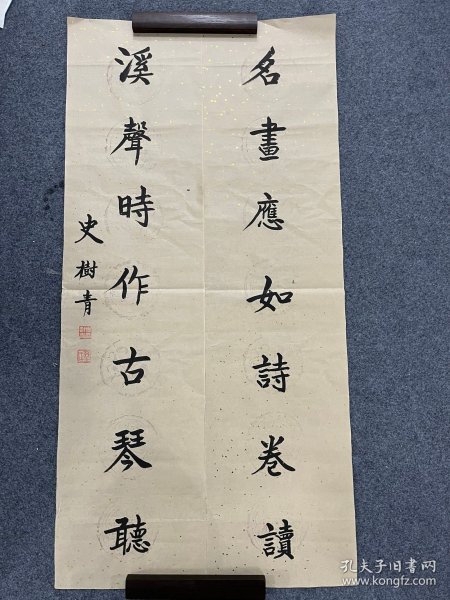 名畫應如詩卷讀
溪聲時作古琴聽
史樹青
孔夫子旧书网
www.kongfz.com